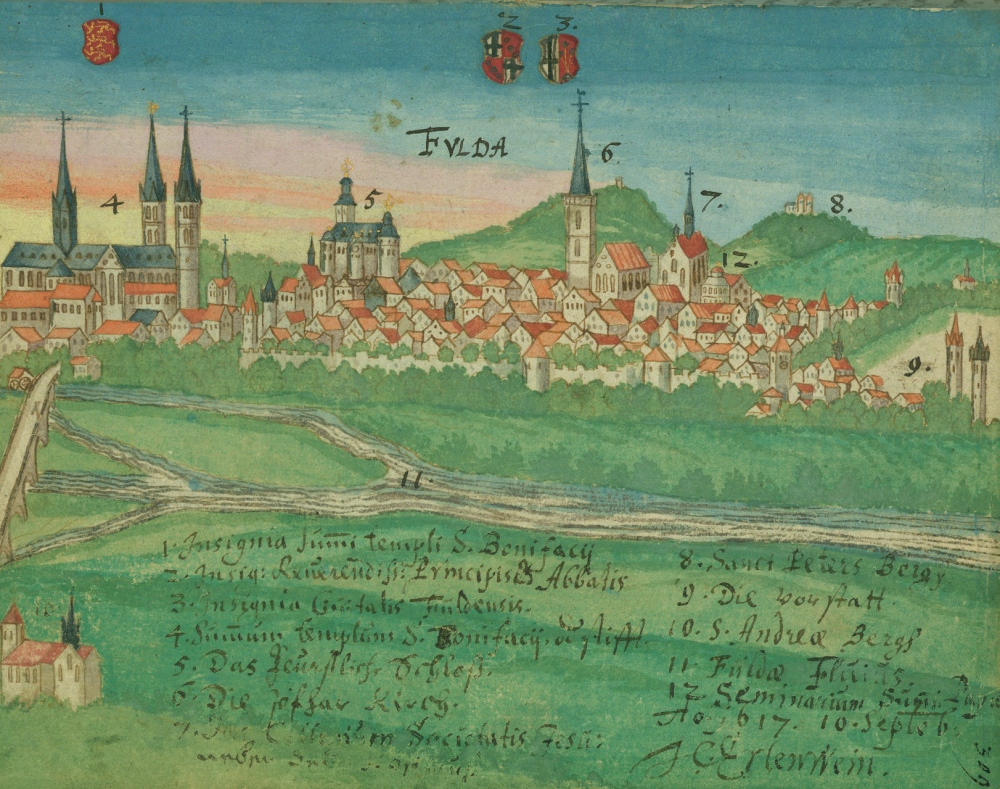 1
2
3.
FVLDA
4
5
6
7.
8.
12.
9.
11.
10.
1. Insignia summi templi S. Bonifacij
2. Insig: Reuerendiss: Principis Abbatis
3. Insignia Ciuitatis Fuldensis.
4. Summum templum S. Bonifacij. stifft.
5. Das Scholoß.
6. Die Kirch.
7. Societatis Jesu
8. Sanct Peters Bergk
9. Die vorstatt.
10. S. Andreæ Bergh
11 Fuldæ Fluuius.
12 Seminarium
Aō. 1617. 10. Septeb.
J C Erlenwein.